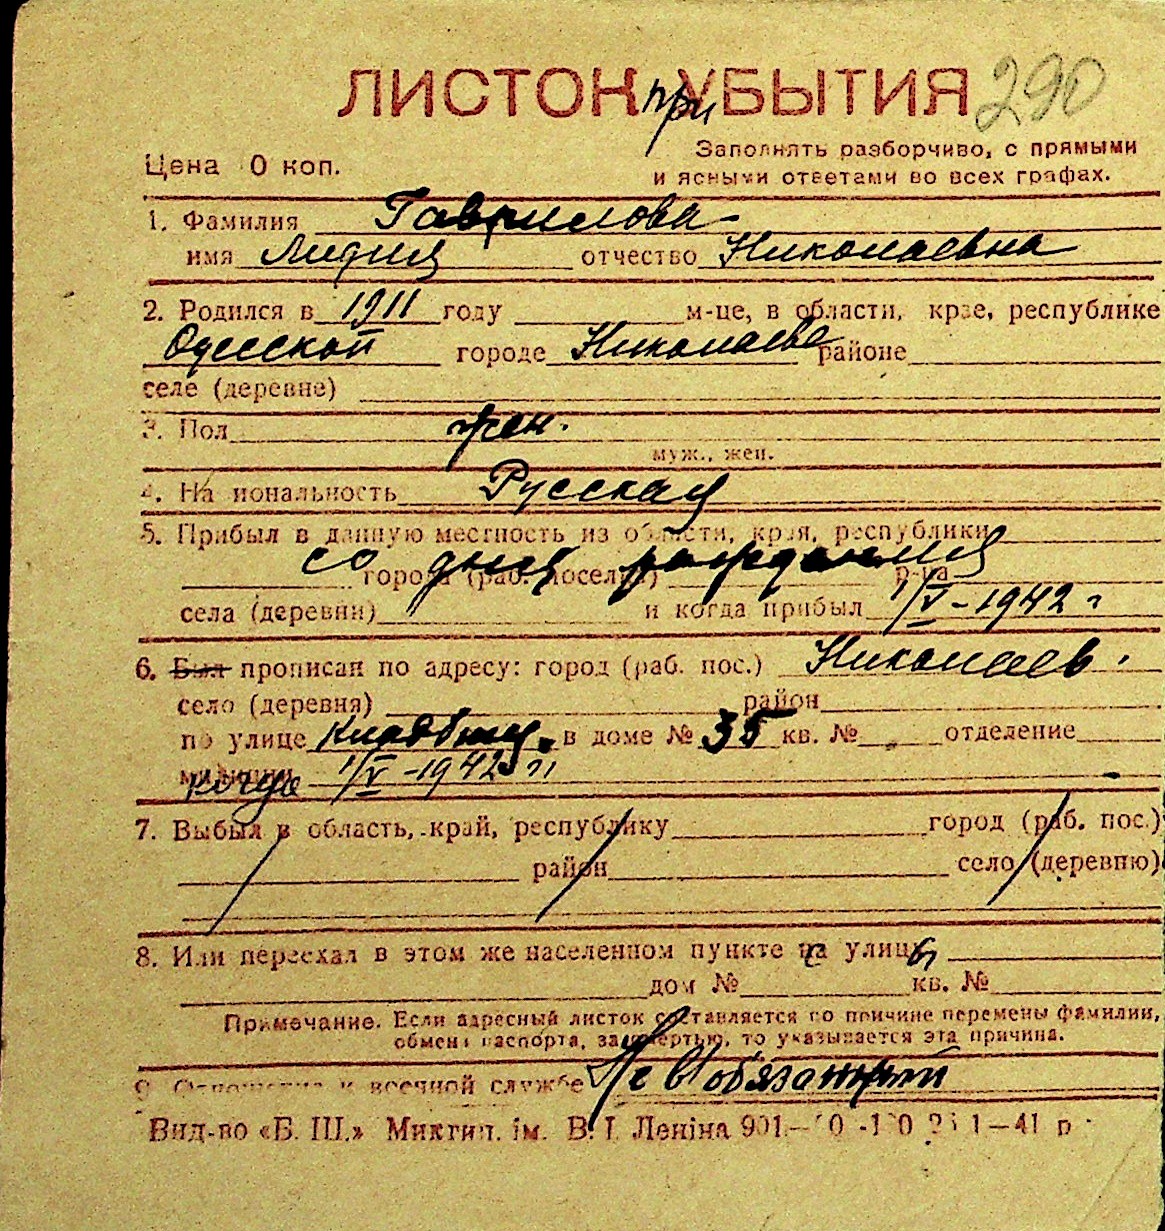 ЛИСТОК при УБЫТИЯ 290
Цена 0 коп.
Заполнять разборчиво, с прямыми
и ясными ответами во всех графах.
1. Фамилия Гаврилова
имя Лидия отчество Николаевна
2. Родился в 1911 году м-це, в области, крае, республике
Одесской городе Николаеве районе
селе (деревне)
3. Пол жен.
муж., жен.
4. На иональность Русская
5. Прибыл в данную местность из области, края, республики
со дня рождения
города (раб. поселка) р-на
села (деревни) и когда прибыл 1/V-1942 г
6. Был прописан по адресу: город (раб. пос.) Николаев.
село (деревня) район
по улице Кладбищ. в доме № 35 кв. № отделение
милиции когда 1/V-1942 г
7. Выбыл в область, край, республику город (раб. пос.)
район село (деревню)
8. Или переехал в этом же населенном пункте на улицу
дом № кв. №
Примечание. Если адресный листок составляется по причине перемены фамилии,
обмена паспорта, за смертью, то указывается эта причина.
9. Отношение к военной службе Не в/обязанный
Вид-во «Б. Ш.» Микгип. ім. В. І. Леніна 901